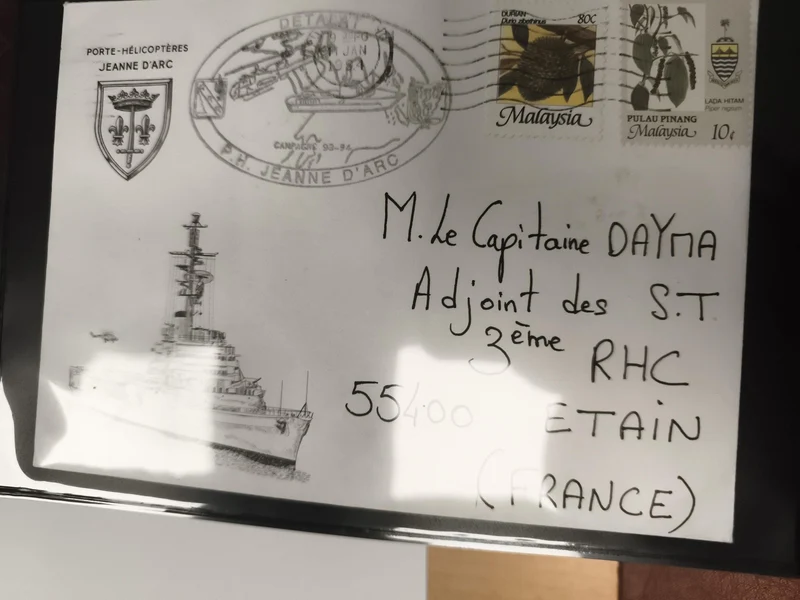 PORTE-HÉLICOPTÈRES
JEANNE D'ARC
DETALAT
JAN
CAMPAGNE 93-94
P.H. JEANNE D'ARC
DURIAN
Durio zibethinus
80¢
Malaysia
LADA HITAM
Piper nigrum
PULAU PINANG
Malaysia 10¢
M. Le Capitaine DAYMA
Adjoint des S.T.
3ème RHC
55400 ETAIN
(FRANCE)